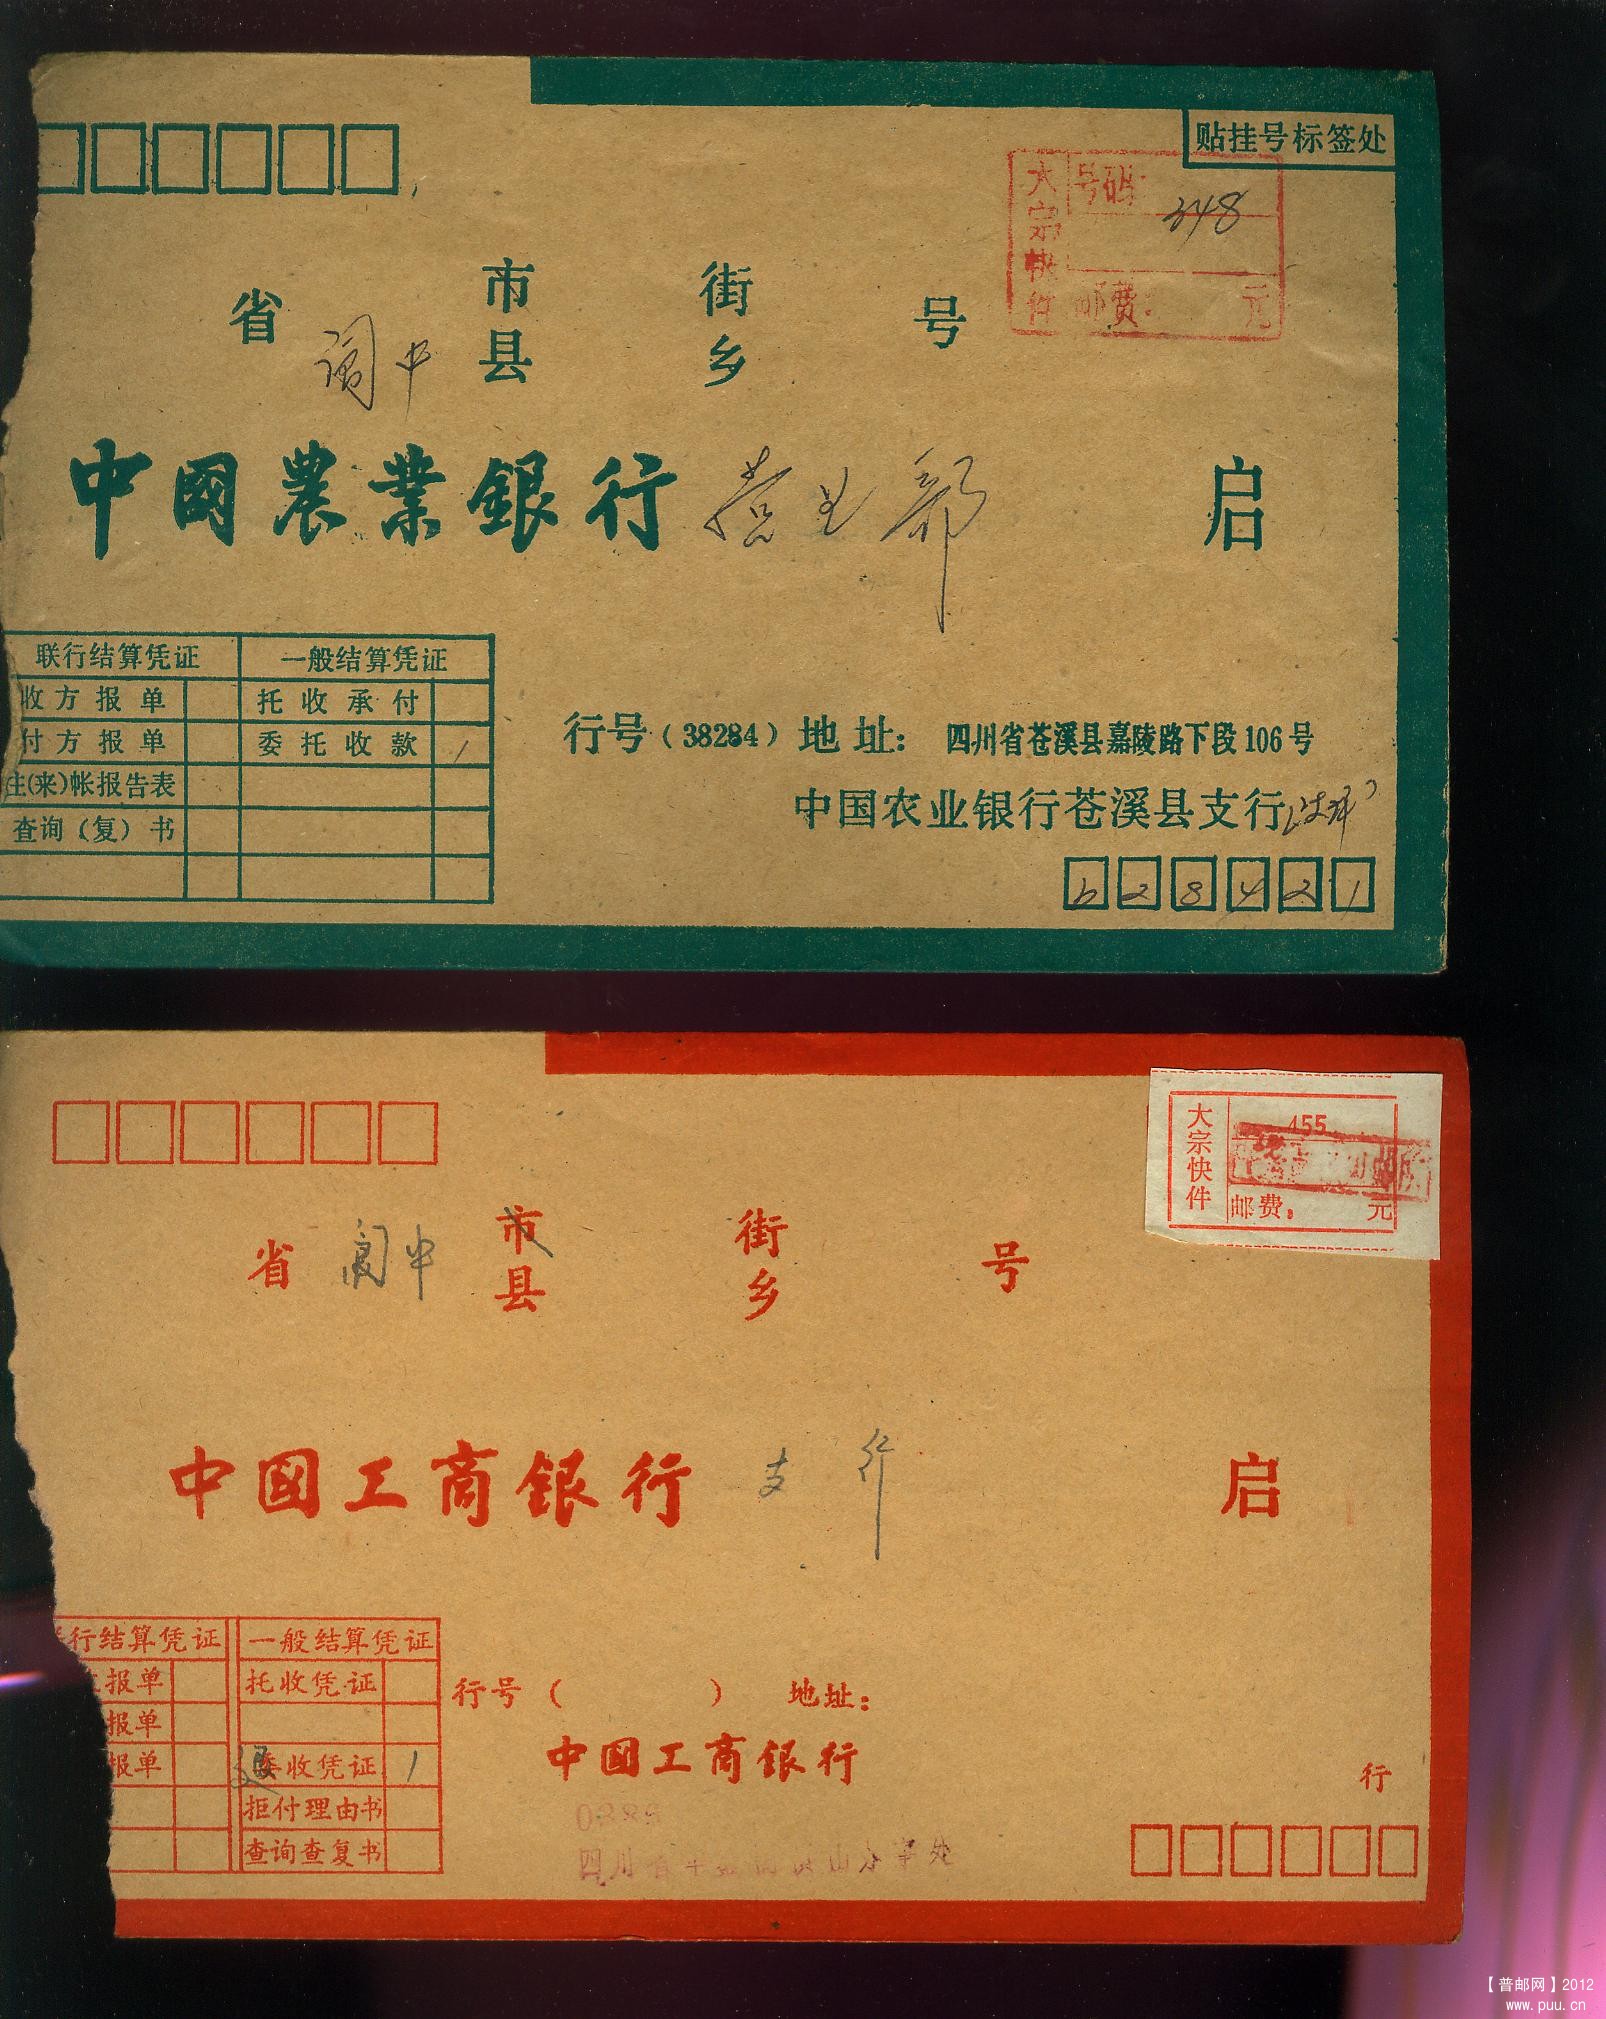 贴挂号标签处
大宗快件
号码:
348
邮费: 元
省 阆中 市县 街乡 号
中國農業銀行 营业部 启
联行结算凭证 一般结算凭证
收方报单 托收承付
付方报单 委托收款 1
往(来)帐报告表
查询(复)书
行号(38284)地址: 四川省苍溪县嘉陵路下段106号
中国农业银行苍溪县支行
628421
大宗快件
455
邮费: 元
省 阆中 市县 街乡 号
中國工商銀行 支行 启
行结算凭证 一般结算凭证
报单 托收凭证
报单
报单 委收凭证 1
拒付理由书
查询查复书
行号( ) 地址:
中國工商銀行 行
四川省
【普邮网】2012
www.puu.cn